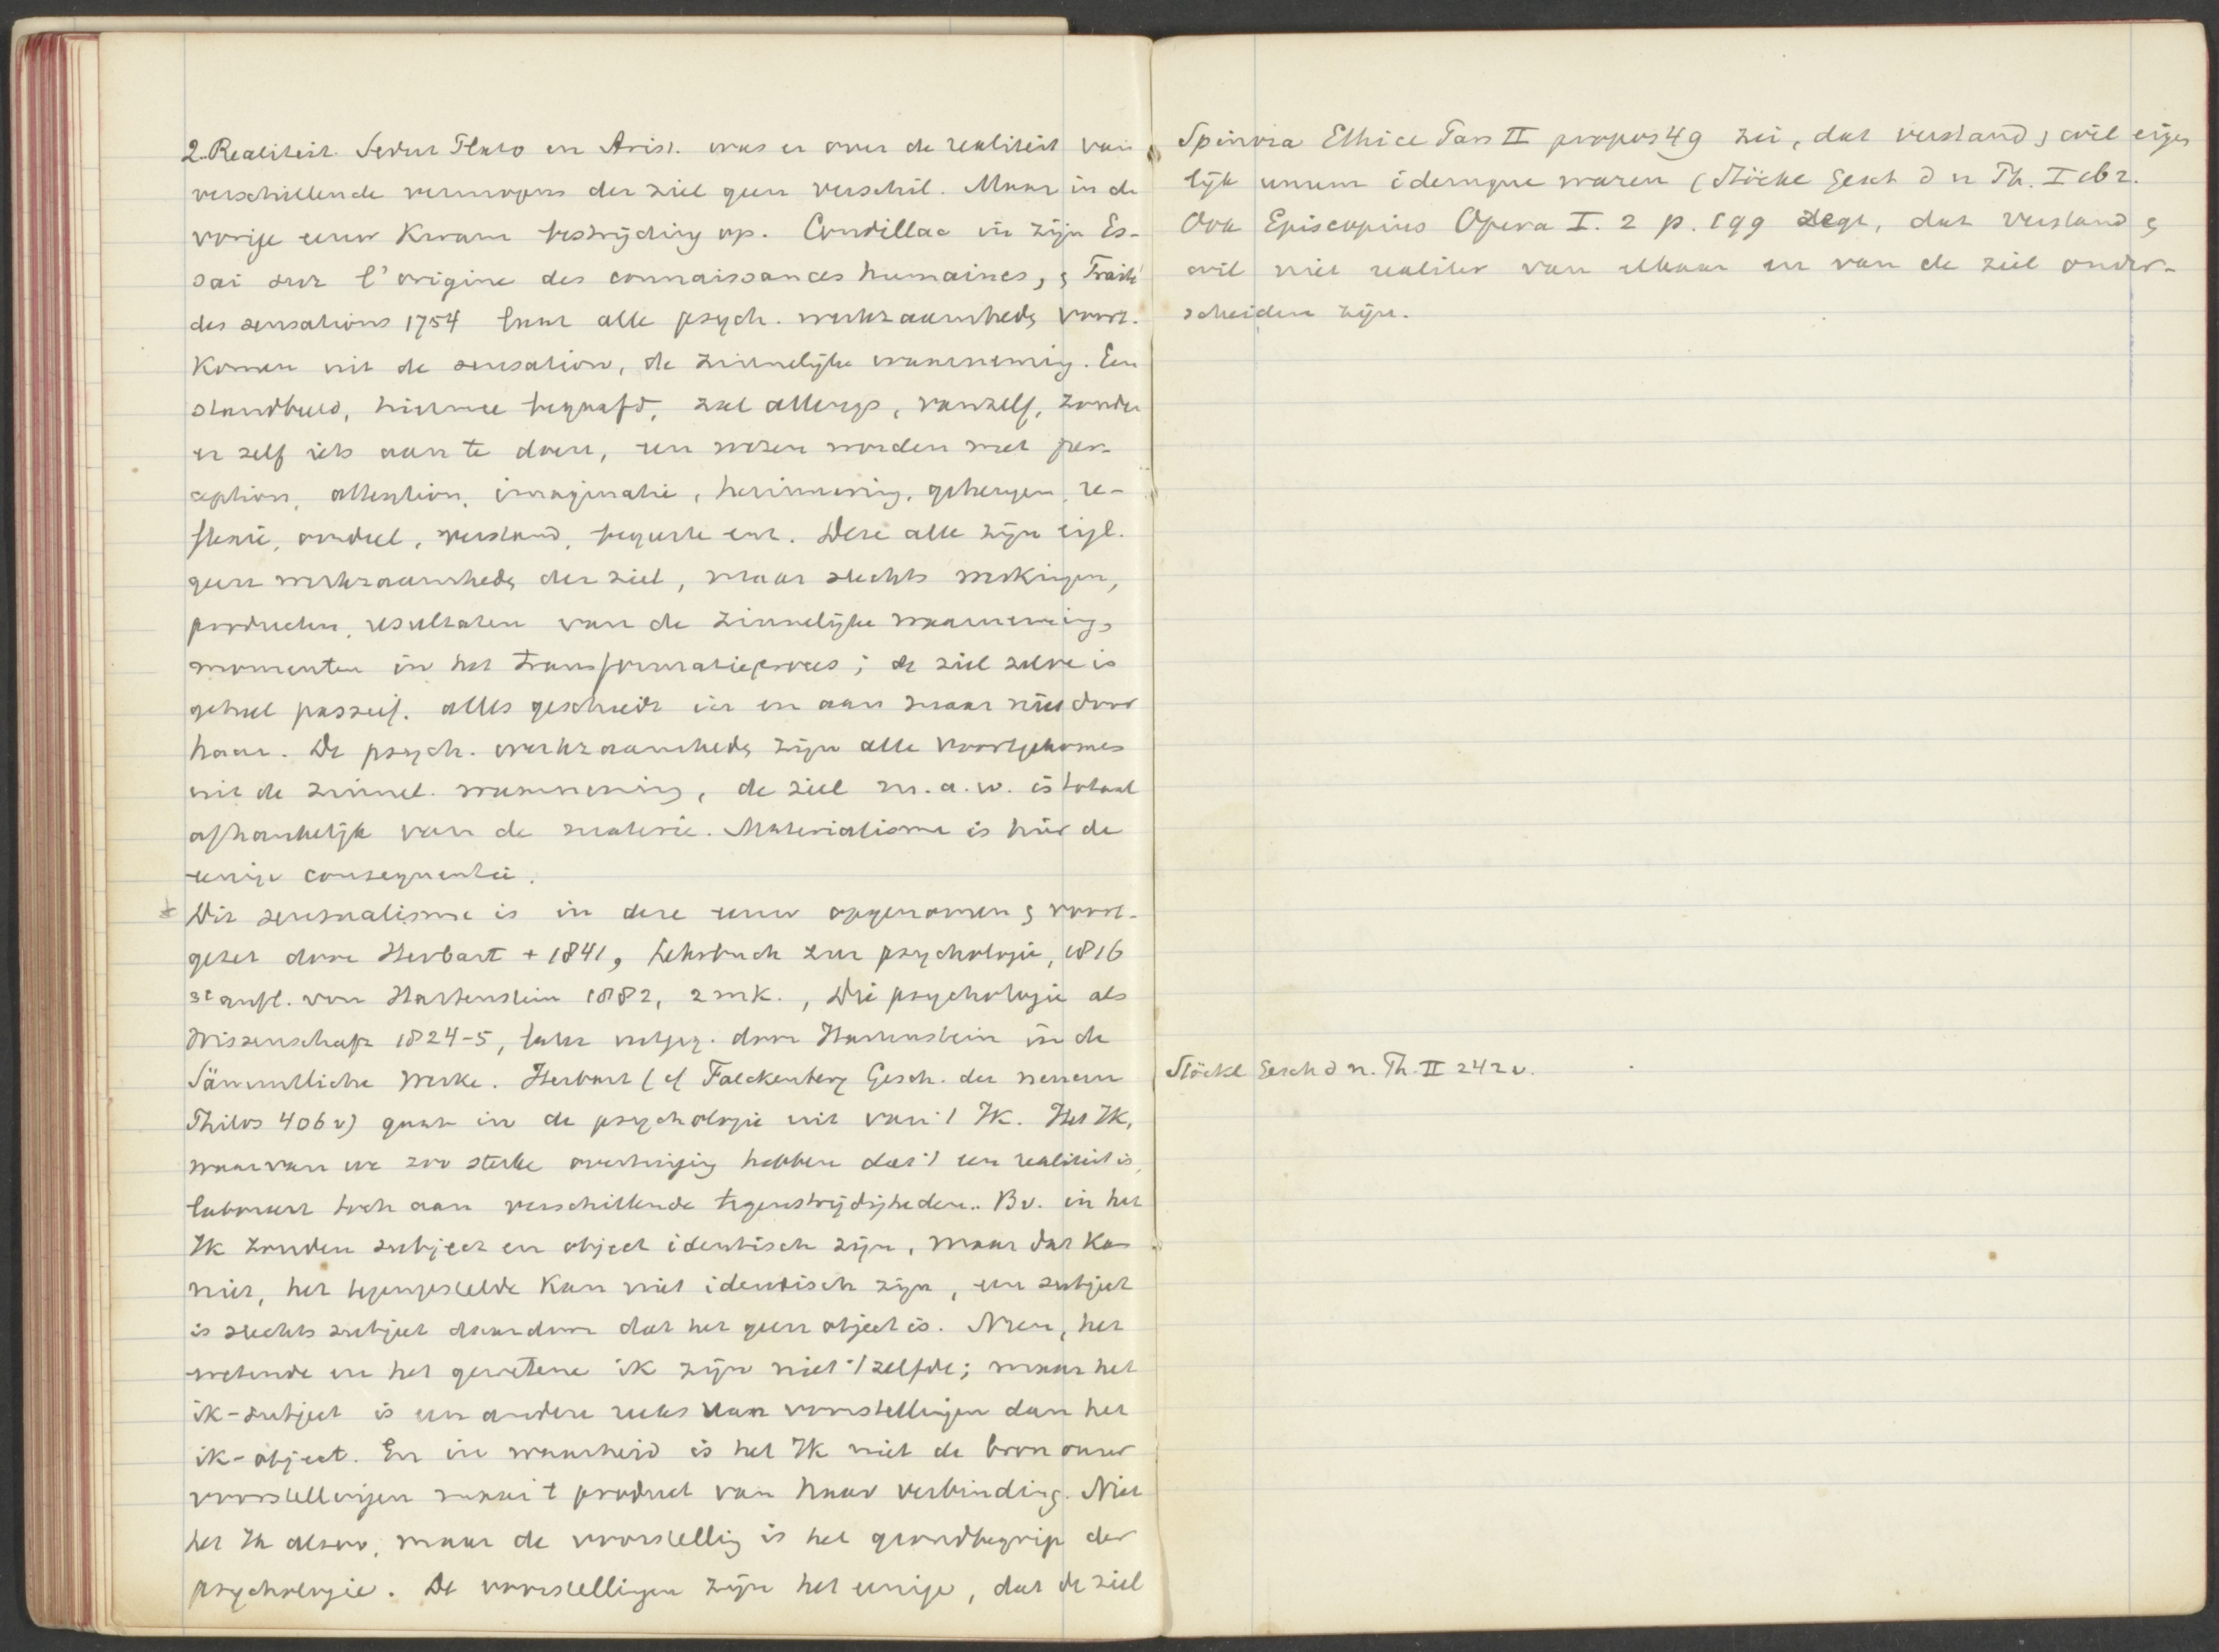 2. Realiteit. Sedert Plato en Arist. was er over de realiteit van
verschillende vermogens der ziel geen verschil. Maar in de
vorige eeuw kwam bestrijding op. Condillac in zijn Es-
sai sur l'origine des connaissances humaines, & Traité
des sensations 1754 laat alle psych. werkzaamhedn voort-
komen uit de sensation, de zinnelijke waarneming. Een
standbeeld, hiermee begaafd, zal allengs, vanzelf, zonder
er zelf iets aan te doen, een wezen worden met per-
ception, attention, imaginatie, herinnering, geheugen, re-
flexie, oordeel, verstand, begeerte enz. Deze alle zijn eigl.
geen werkzaamhedn der ziel, maar slechts werkingen,
producten, resultaten van de zinnelijke waarneming,
momenten in het transformatieproces; de ziel zelve is
geheel passief. alles geschiedt in en aan maar niet door
haar. De psych. werkzaamhedn zijn alle voortgekomen
uit de zinnel. waarneming, de ziel m.a.w. is totaal
afhankelijk van de materie. Materialisme is hier de
eenige consequentie.
Dit sensualisme is in deze eeuw opgenomen & voort-
gezet door Herbart + 1841, Lehrbuch zur psychologie, 1816
3e aufl. von Hartenstein 1882, 2 mk., Die psychologie als
Wissenschaft 1824-5, later uitgeg. door Hartenstein in de
Sämmtliche Werke. Herbart (cf Falckenberg Gesch. der neuern
Philos 406 v) gaat in de psychologie uit van 't Ik. Het Ik,
waarvan we zoo sterke overtuiging hebben dat 't een realiteit is,
laboreert toch aan verschillende tegenstrijdigheden. Bv. in het
Ik zouden subject en object identisch zijn, maar dat kan
niet, het tegengestelde kan niet identisch zijn, een subject
is slechts subject daardoor dat het geen object is. Neen, het
wetende en het gewetene ik zijn niet 't zelfde; maar het
ik-subject is een andere reeks van voorstellingen dan het
ik-object. En in waarheid is het Ik niet de bron onzer
voorstellingen maar 't product van haar verbinding. Niet
het Ik alzoo, maar de voorstelling is het grondbegrip der
psychologie. De voorstellingen zijn het eenige, dat de ziel
Spinoza Ethice Pars II propos 49 zei, dat verstand & wil eigen
lijk unum idemque waren (Stöckl Gesch d n Ph. I 162.
Ook Episcopius Opera I. 2 p. 199 zegt, dat verstand &
wil niet realiter van elkaar en van de ziel onder-
scheiden zijn.
Stöckl Gesch d n. Ph. II 242 v.